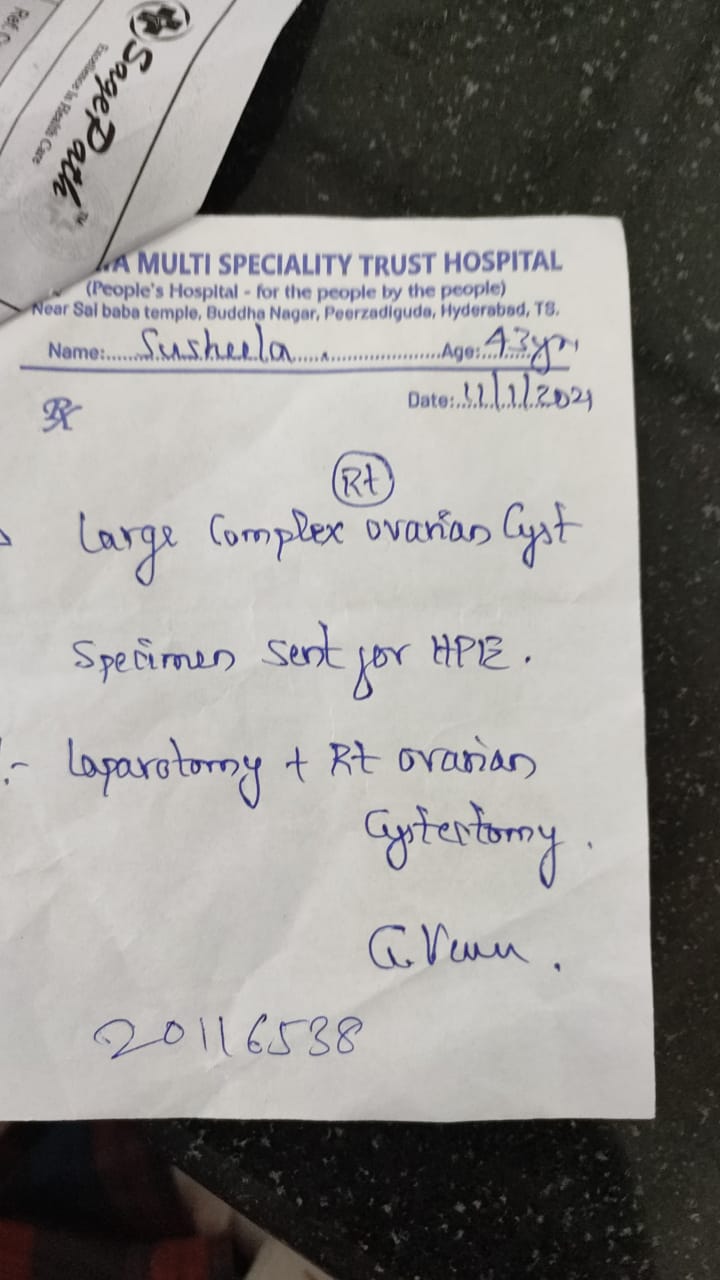 Ref. C
SagePath™
Excellence in Health Care
A MULTI SPECIALITY TRUST HOSPITAL
(People's Hospital - for the people by the people)
Near Sai baba temple, Buddha Nagar, Peerzadiguda, Hyderabad, TS.
Name:......Susheela..........................Age:..43yrs
Rx
Date:..11/1/2021
Rt
Large Complex ovarian Cyst
Specimen sent for HPE.
:- Laparotomy + Rt ovarian
Cystectomy.
20116538